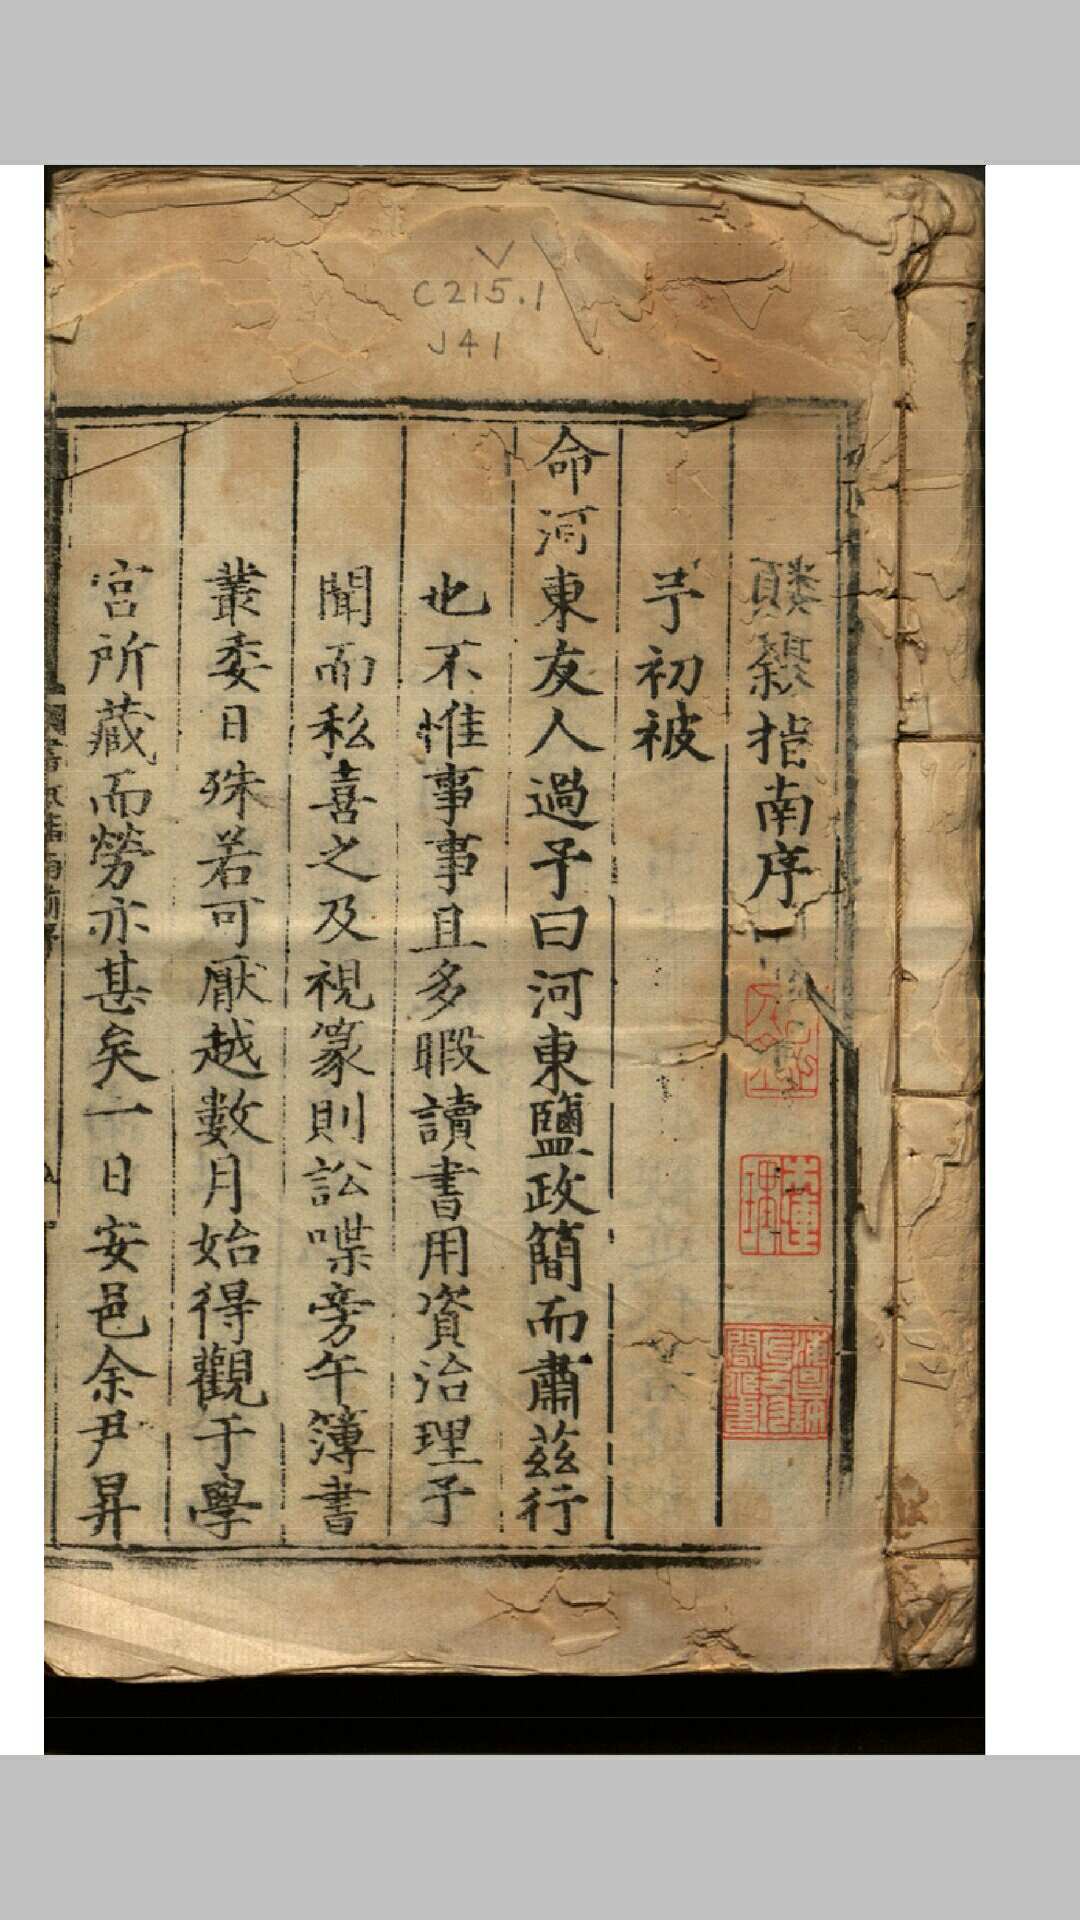 C215.1
J41
類聚指南序
予初被
命河東友人過予曰河東鹽政簡而肅茲行
也不惟事事且多暇讀書用資治理予
聞而私喜之及視篆則訟喋旁午簿書
叢委日殊若可厭越數月始得觀于學
宮所藏而勞亦甚矣一日安邑余尹昇